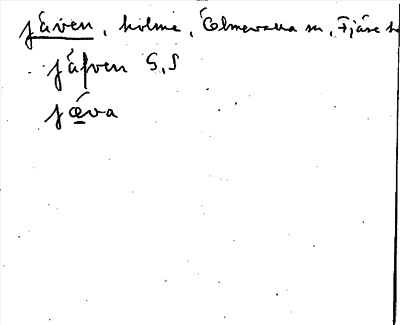 jäven, holme, Ölmevalla sn, Fjäre h
jäfven G, S
jæva